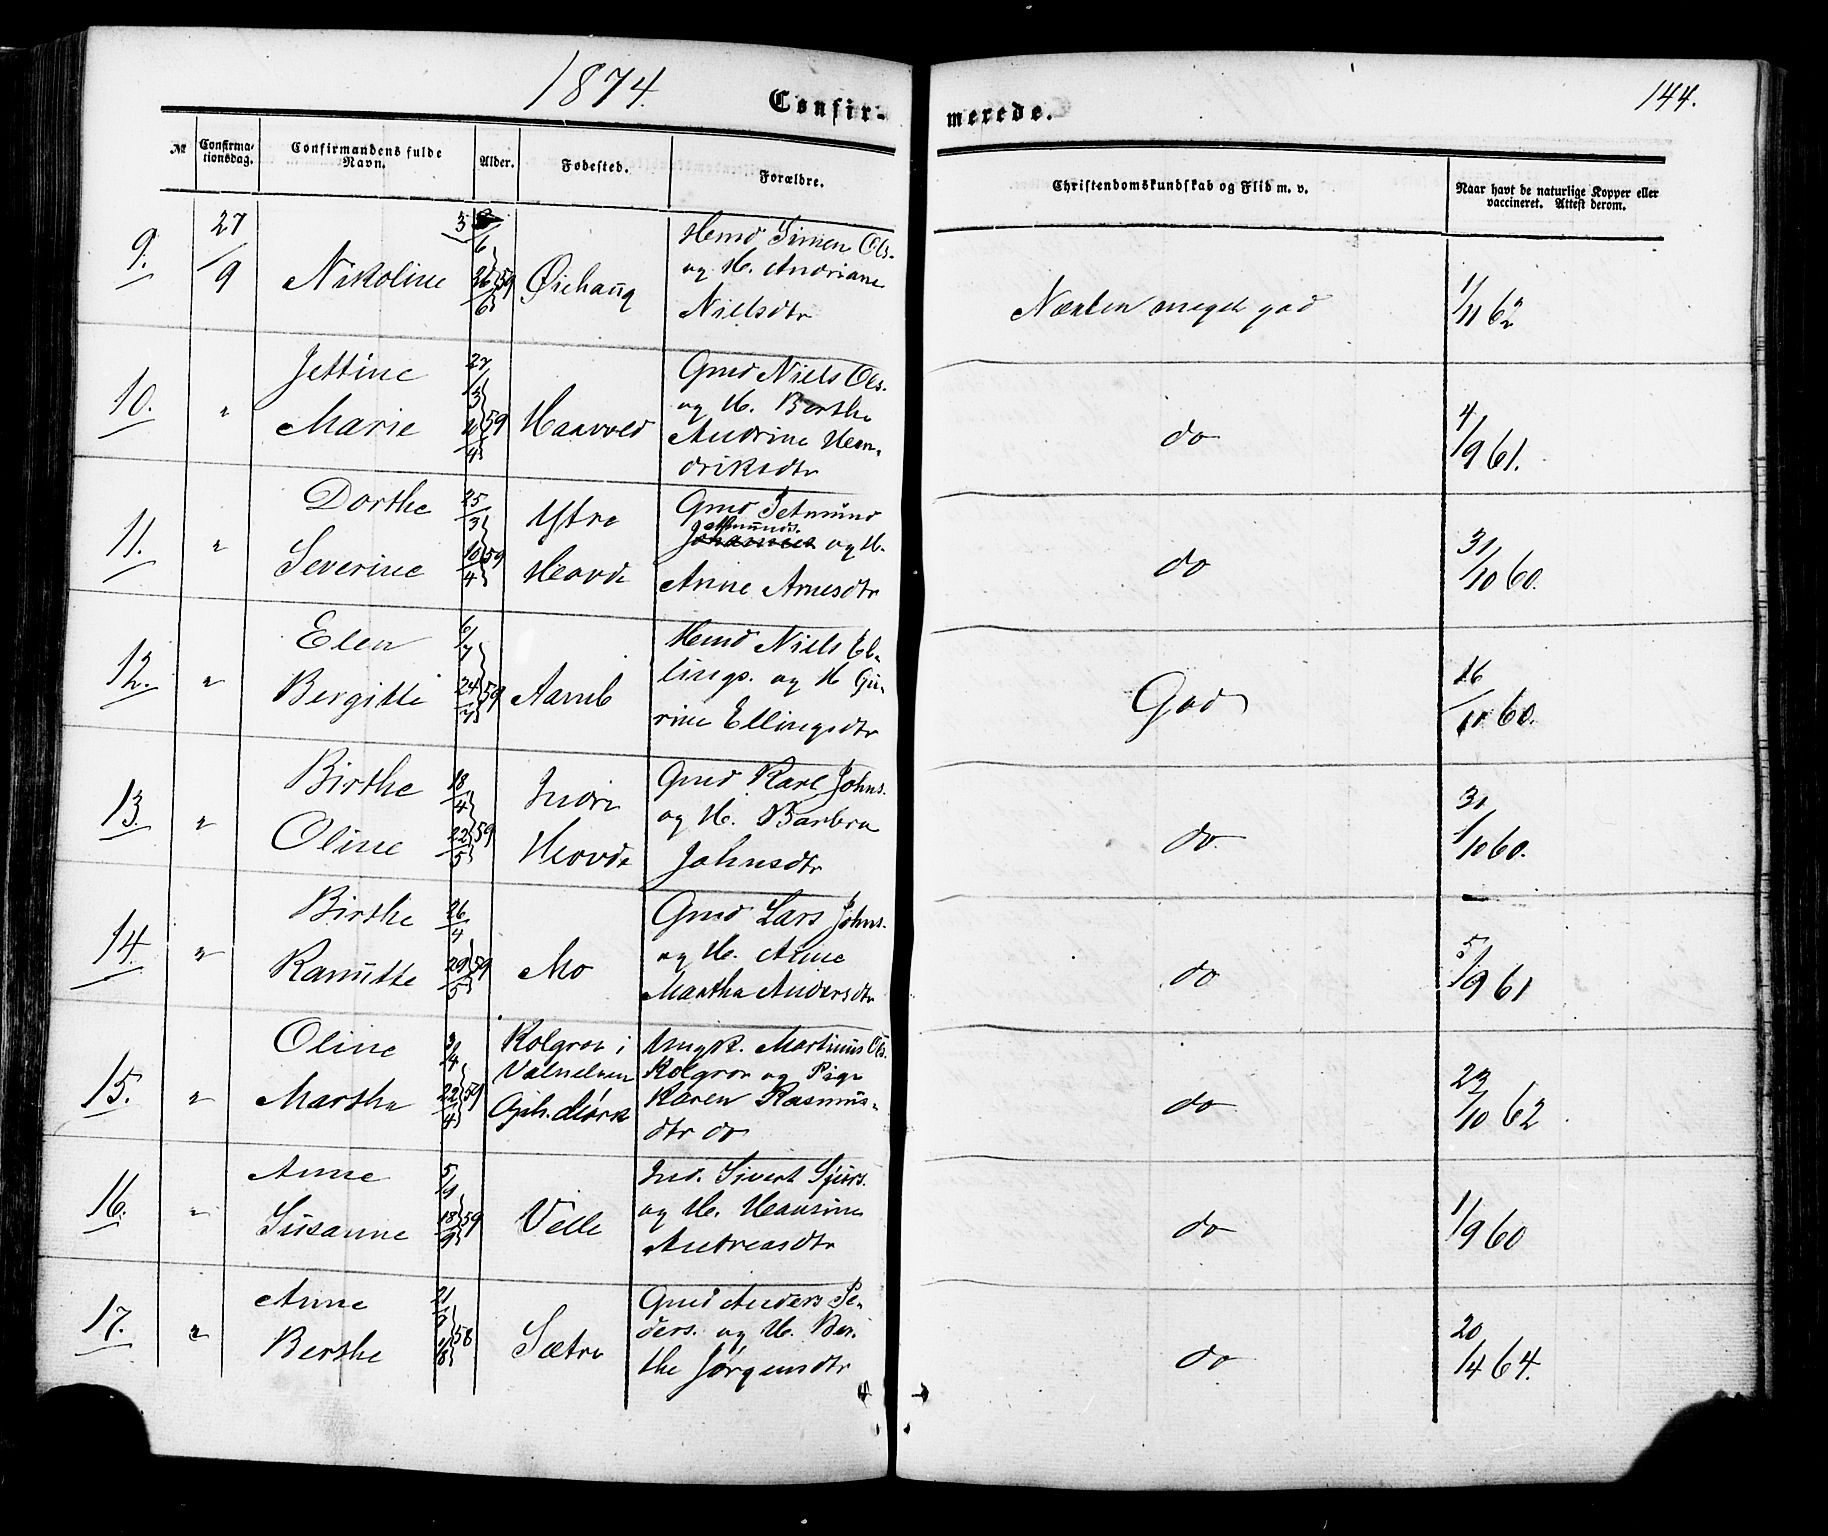 1874.
144.
Confir-
merede.
№
Confirma-
tionsdag.
Confirmandens fulde
Navn.
Alder.
Fødested.
Forældre.
Christendomskundskab og Flid m. v.
Naar havt de naturlige Kopper eller
vaccineret. Attest derom.
9. 27/9 Nikoline 5/6 26/6 59 Øiehaug
Hmd Simen Ols.
og H. Andriane
Nielsdtr
Næsten meget god
1/11 62
10. "
Jettine
Marie
27/3 10/4 59 Haavold
Gmd Niels Ols.
og H. Berthe
Andrine Hen-
driksdtr
do
4/9 61.
11. "
Dorthe
Severine
25/3 10/4 59
Ytre
Hovde
Gmd Jetmund
Jetmunds.
og H.
Anne Arnesdtr
do
31/10 60.
12. "
Elen
Bergitte
6/7 24/7 59 Aamb
Hmd Niels El-
lings. og H Gu-
rine Ellingsdtr
God
16/11 60.
13. "
Birthe
Oline
18/4 22/5 59
Indre
Hovde
Gmd Karl Johns.
og H. Barbra
Johnsdtr
do
31/10 60.
14. "
Birthe
Kanutte
26/4 29/5 59 Mo
Gmd Lars Johns.
og H. Anne
Martha Andersdtr
do
5/9 61
15. "
Oline
Martha
3/4 22/4 59
Kolgrov i
Volnelven
Gjh. Mørk
Ungk. Martinus Ols.
Kolgrov og Pige
Karen Rasmus-
dtr do
do
23/10 62
16. "
Anne
Susanne
5/9 18/9 59 Velle
Ind. Sivert Sjurs.
og H. Hansine
Andreasdtr
do
1/9 60
17. "
Anne
Berthe
58 Sætre
Gmd Anders Pe-
ders. og H. Ber-
the Jørgensdtr
do
20/4 64.